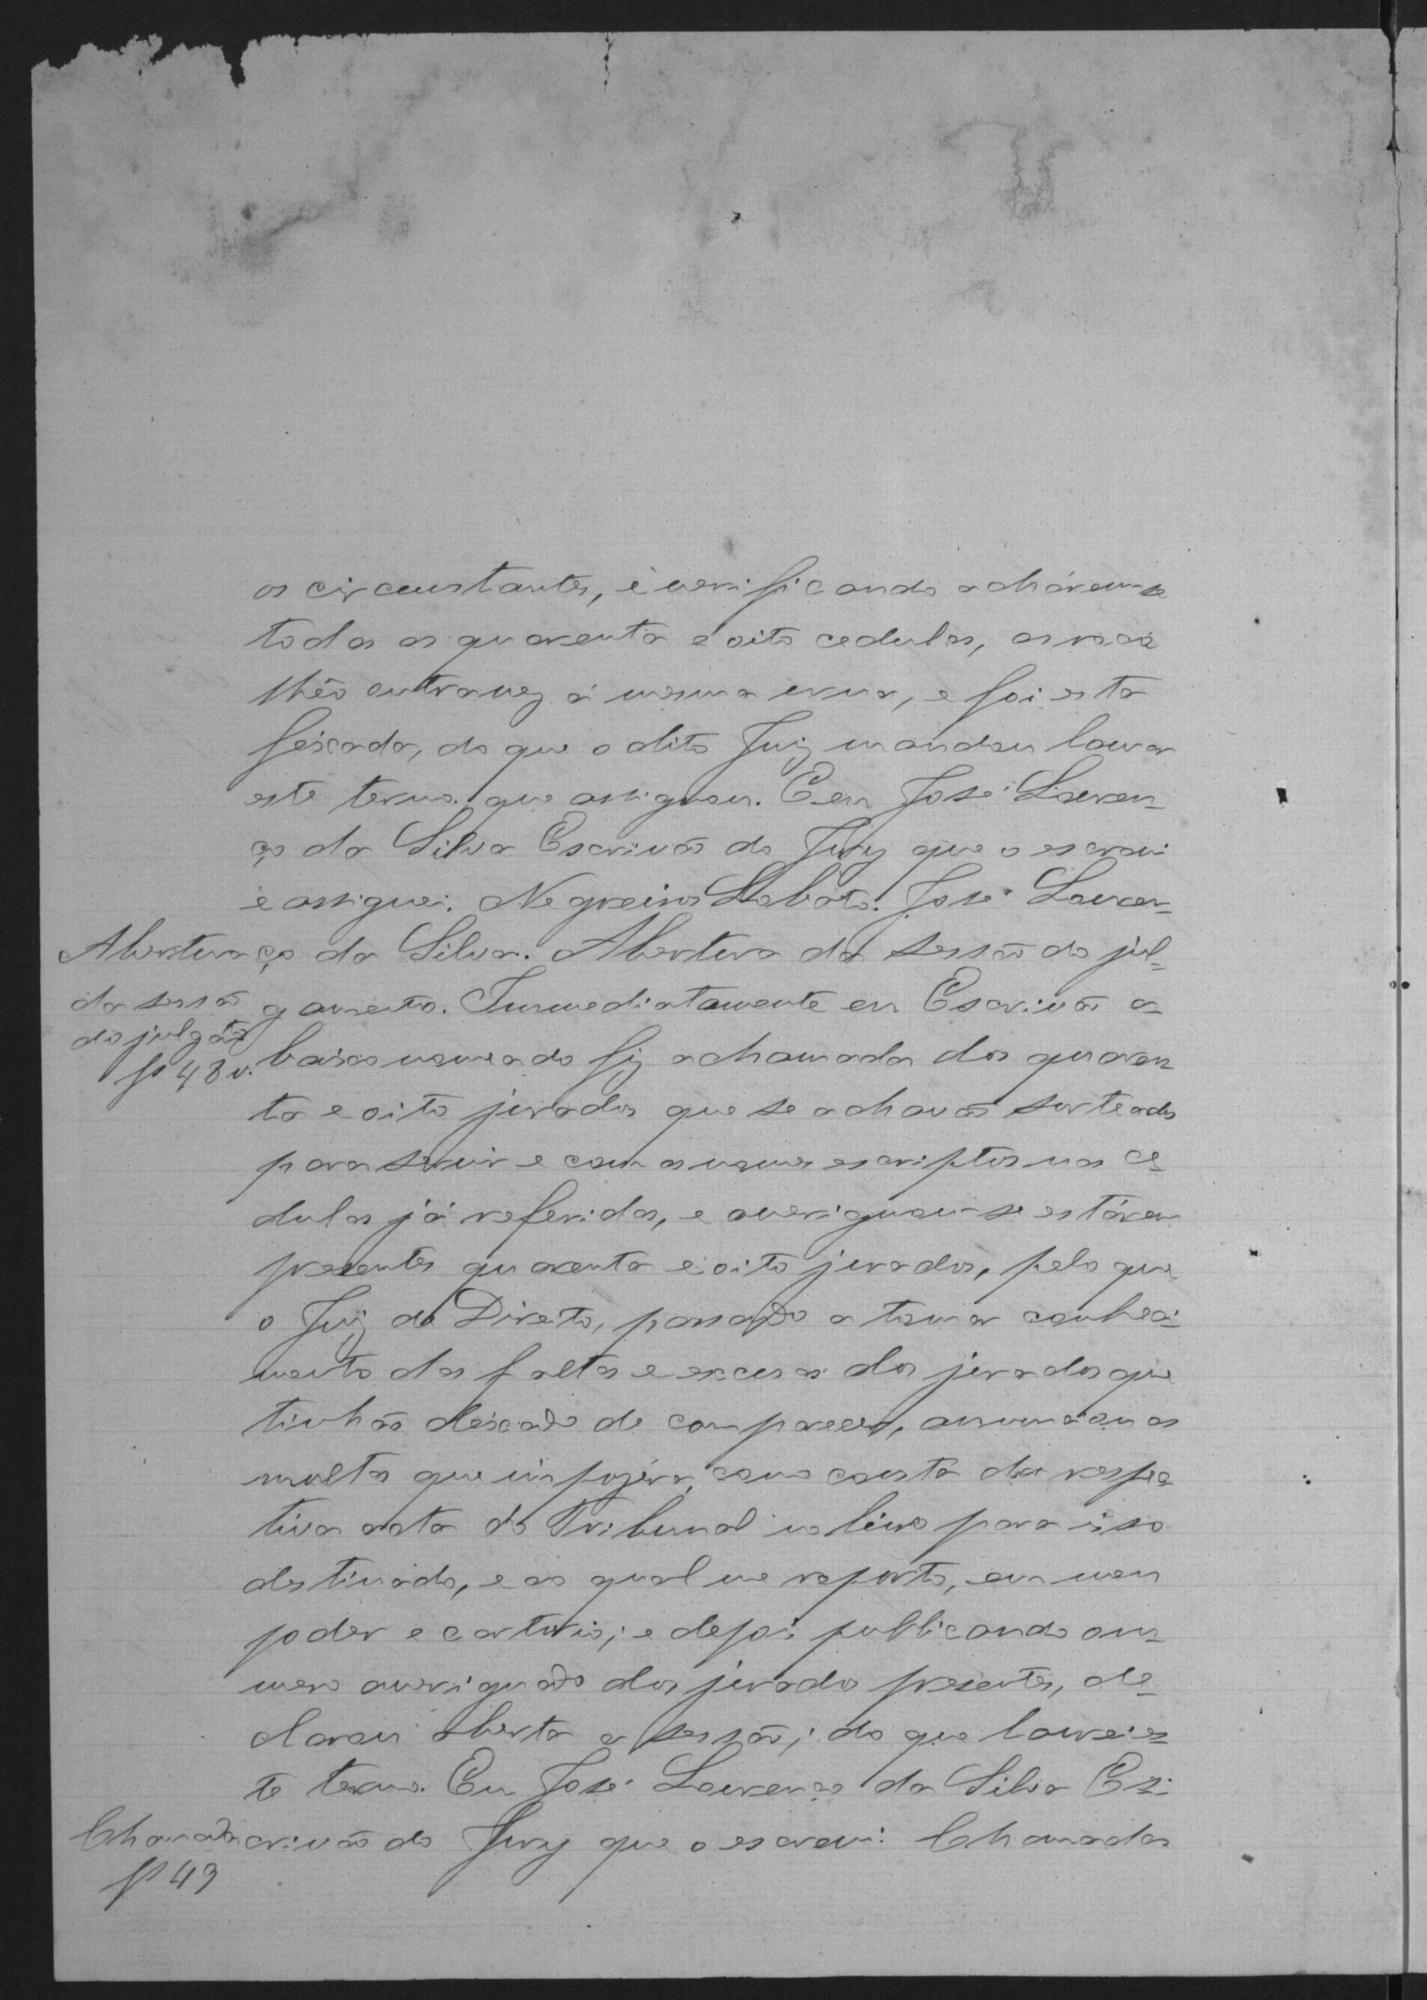 os circunstantes, e verificando achárem-se
todas as quarenta e oito cedulas, as reco
lhêo outra vez á mesma urna, e foi esta
feixada, do que o dito Juiz mandou lavrar
este termo que assignou. E eu José Lauren-
ço da Silva Escrivão do Jury que o escrevi
e assignei. Negreiros Lobato. José Lauren-
Abertura
da sessão
do julgåto
fs 48 v.
ço da Silva. Abertura da sessão do jul-
gamento. Immediatamente eu Escrivão a-
baixo nomeado fiz a chamada dos quaren-
ta e oito jurados que se achavão sorteados
para servir e com os nomes escriptos nas ce-
dulas já referidas, e averiguou-se estárem
presentes quarenta e oito jurados, pelo que
o Juiz de Direito, passando a tomar conheci-
mento das faltas e escusas dos jurados que
tinhão deixado de comparecer, annunciou as
multas que impozéra, como consta da respec-
tiva acta do Tribunal no livro para isso
destinado, e ao qual me reporto, em meu
poder e cartorio; e depois publicando o nu-
mero averiguado dos jurados presentes, de-
clarou aberta a sessão; do que lavrei es-
te termo. Eu José Laurenço da Silva Es-
Chamada
fs 49
crivão do Jury que o escrevi. Chamada